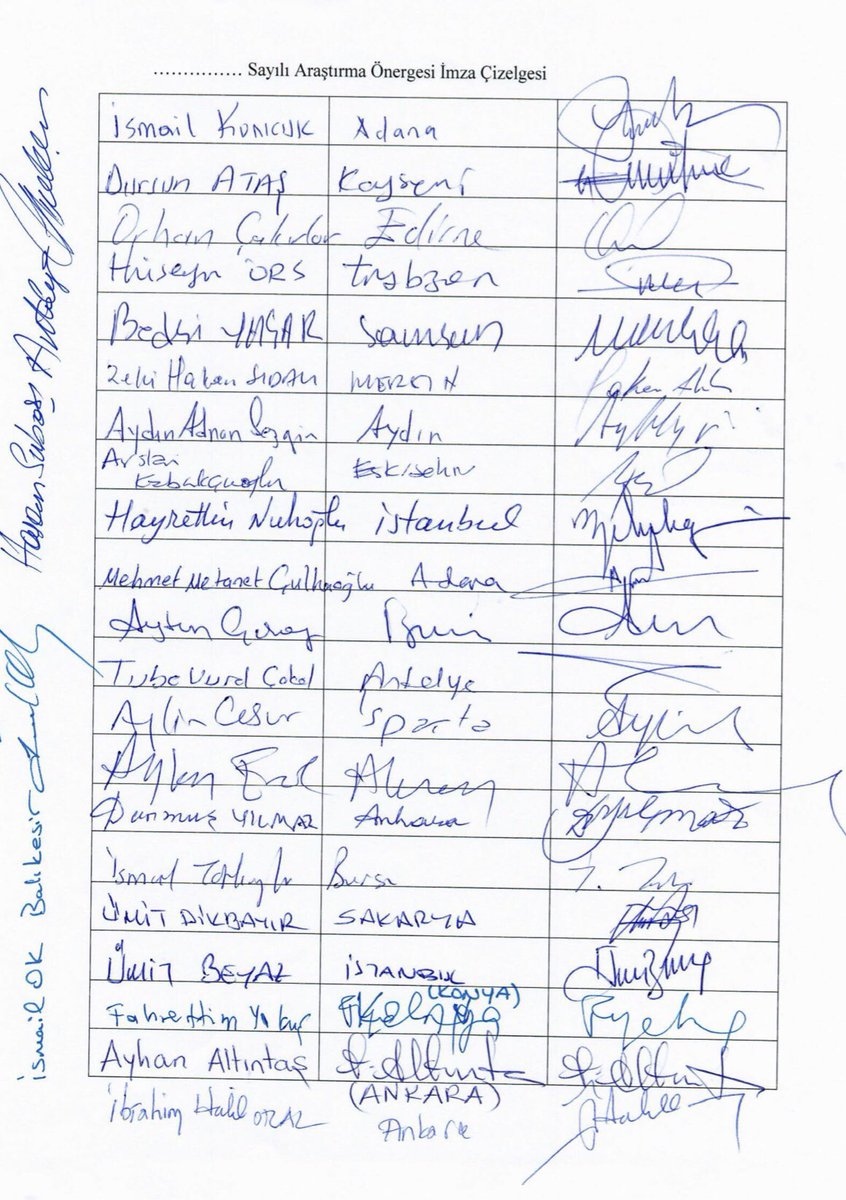 ............... Sayılı Araştırma Önergesi İmza Çizelgesi
İsmail KONCUK Adana
Dursun ATAŞ Kayseri
Orhan Çakırlar Edirne
Hüseyin ÖRS Trabzon
Bedri YAŞAR Samsun
Zeki Hakan SIDALI MERSİN
Aydın Adnan Sezgin Aydın
Arslan Kabakçıoğlu Eskişehir
Hayrettin Nuhoğlu İstanbul
Mehmet Metanet Çulhaoğlu Adana
Aytun Çıray İzmir
Tuba Vural Çokal Antalya
Aylin Cesur Isparta
Ayhan Erel Aksaray
Durmuş YILMAZ Ankara
İsmail Tatlıoğlu Bursa
ÜMİT DİKBAYIR SAKARYA
ÜMİT BEYAZ İSTANBUL
Fahrettin Yokuş (KONYA)
Ayhan Altıntaş
(ANKARA)
İbrahim Halil ORAL Ankara
Hasan Subaşı Antalya
İsmail OK Balıkesir